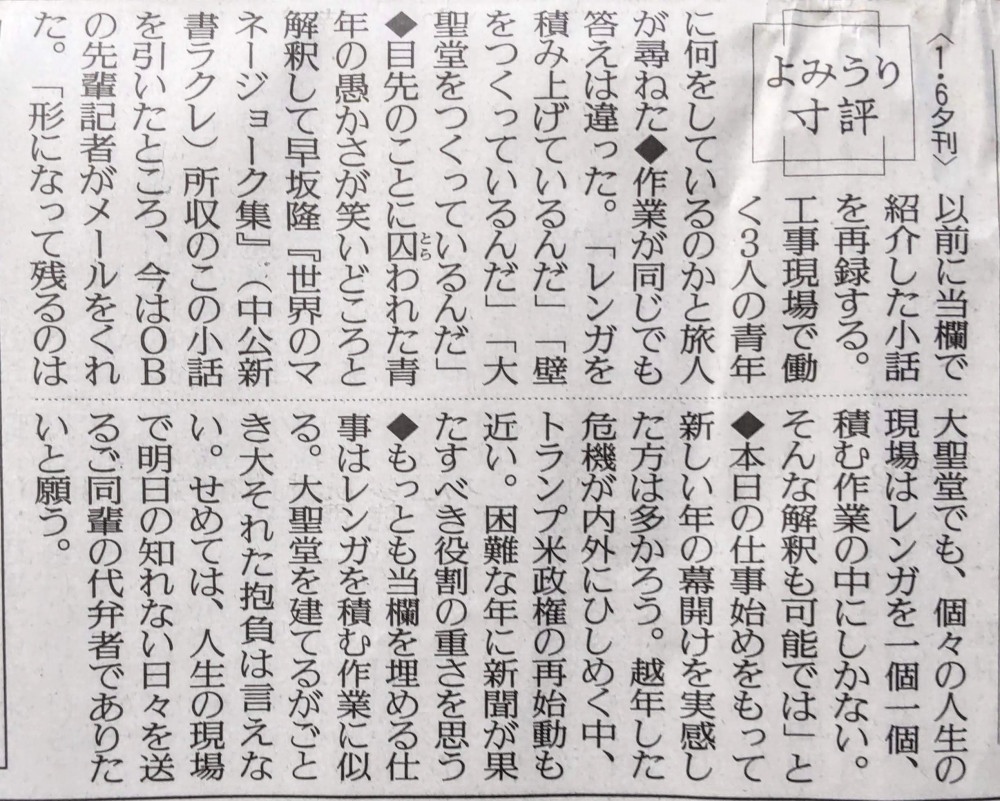 〈1・6夕刊〉
よみうり
寸評
以前に当欄で
紹介した小話
を再録する。
工事現場で働
く3人の青年
に何をしているのかと旅人
が尋ねた◆作業が同じでも
答えは違った。「レンガを
積み上げているんだ」「壁
をつくっているんだ」「大
聖堂をつくっているんだ」
◆目先のことに囚とらわれた青
年の愚かさが笑いどころと
解釈して早坂隆『世界のマ
ネージョーク集』（中公新
書ラクレ）所収のこの小話
を引いたところ、今はOB
の先輩記者がメールをくれ
た。「形になって残るのは
大聖堂でも、個々の人生の
現場はレンガを一個一個、
積む作業の中にしかない。
そんな解釈も可能では」と
◆本日の仕事始めをもって
新しい年の幕開けを実感し
た方は多かろう。越年した
危機が内外にひしめく中、
トランプ米政権の再始動も
近い。困難な年に新聞が果
たすべき役割の重さを思う
◆もっとも当欄を埋める仕
事はレンガを積む作業に似
る。大聖堂を建てるがごと
き大それた抱負は言えな
い。せめては、人生の現場
で明日の知れない日々を送
るご同輩の代弁者でありた
いと願う。